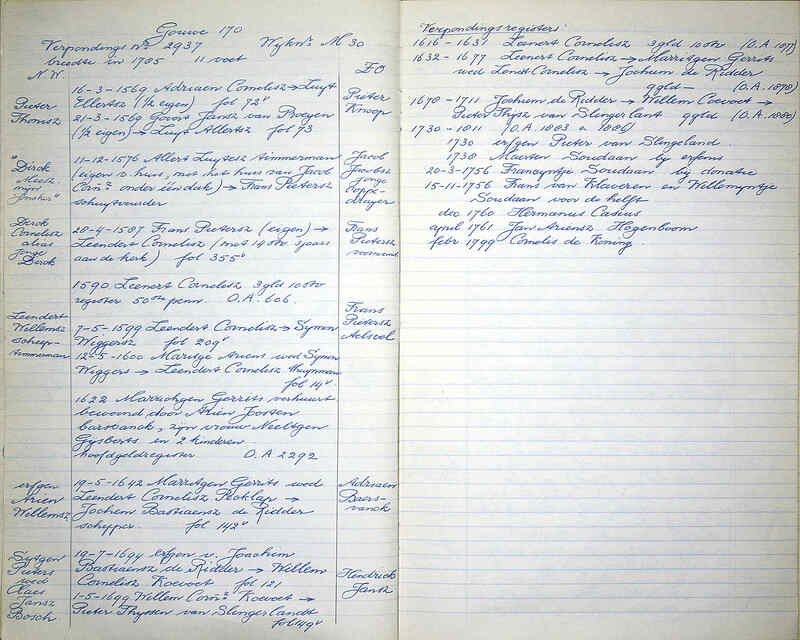 Gouwe 170
Verpondings no 2937 Wijkno M 30
breedte in 1785 11 voet
N.W. ZO
Pieter
Thomsz
16-3-1569 Adriaen Cornelisz → Luyt
Ellertsz (½ eigen) fol 72v
21-3-1569 Govert Jansz van Boeyen
(½ eigen) → Luyt Allertsz fol 73
Pieter
Knoop
"Dirck
Meesz
mijn
Jonkers"
11-12-1576 Allert Luytesz timmerman
(eigen v. huis, met het huis van Jacob
Cornsz onder één dak) → Frans Pietersz
schuytvoerder
Jacob
Jacobsz
jonge
coppe-
drayer
Dirck
Cornelisz
alias
jonge
Dirck
20-4-1587 Frans Pietersz (eigen) →
Leendert Cornelisz (met 19 stv sjaars
aan de kerk) fol 355v
Frans
Pietersz
voornoemd
1590 Leenert Cornelisz 3 gld 10 stv
register 50ste penn. O.A. 606.
Leendert
Willemsz
scheep-
timmerman
7-5-1599 Leendert Cornelisz → Symon
Wiggersz fol 209v
12-5-1600 Maritge Ariens wed Symon
Wiggers → Leendert Cornelisz thuynman
fol 14v
Frans
Pietersz
Aelswel
1622 Marrichgen Gerrits verhuurt
bewoond door Arien Joosten
barsvanck, zijn vrouw Neeltgen
Gysberts en 2 kinderen.
hoofdgeldregister O.A 2292
erfgen
Arien
Willemsz
19-5-1642 Marritgen Gerrits wed
Leendert Cornelisz Peoklap →
Jochem Bastiaensz de Ridder
schipper. fol 142v
Adriaen
Baers-
vanck
Sytgen
Pieters
wed
Claes
Jansz
Bosch
19-7-1694 erfgen v. Joachem
Bastiaensz de Ridder → Willem
Cornelisz Koevoet fol 121
1-5-1699 Willem Cornsz Koevoet →
Pieter Thyssen van Slingerlandt
fol 149v
Hendrick
Jansz
Verpondingsregisters:
1616-1631 Leenert Cornelisz 3 gld 10 stv (O.A. 1077)
1632-1677 Leenert Cornelisz → Marritgen Gerrits
wed Lendt Cornelisz → Jochem de Ridder
9 gld - (O.A. 1078)
1678-1711 Jochem de Ridder → Willem Coevoet →
Pieter Thysz van Slingerlant 9 gld (O.A. 1080)
1730-1811 (O.A. 1083 a 1086)
1730 erfgen Pieter van Slingeland.
1730 Maerten Soudaan bij erfenis
20-3-1756 Francyntje Soudaan bij donatie
15-11-1756 Frans van Klaveren en Willemyntje
Soudaan voor de helft
dec 1760 Hermanus Casius
april 1761 Jan Ariensz Hogenboom
febr 1799 Cornelis de Koning.